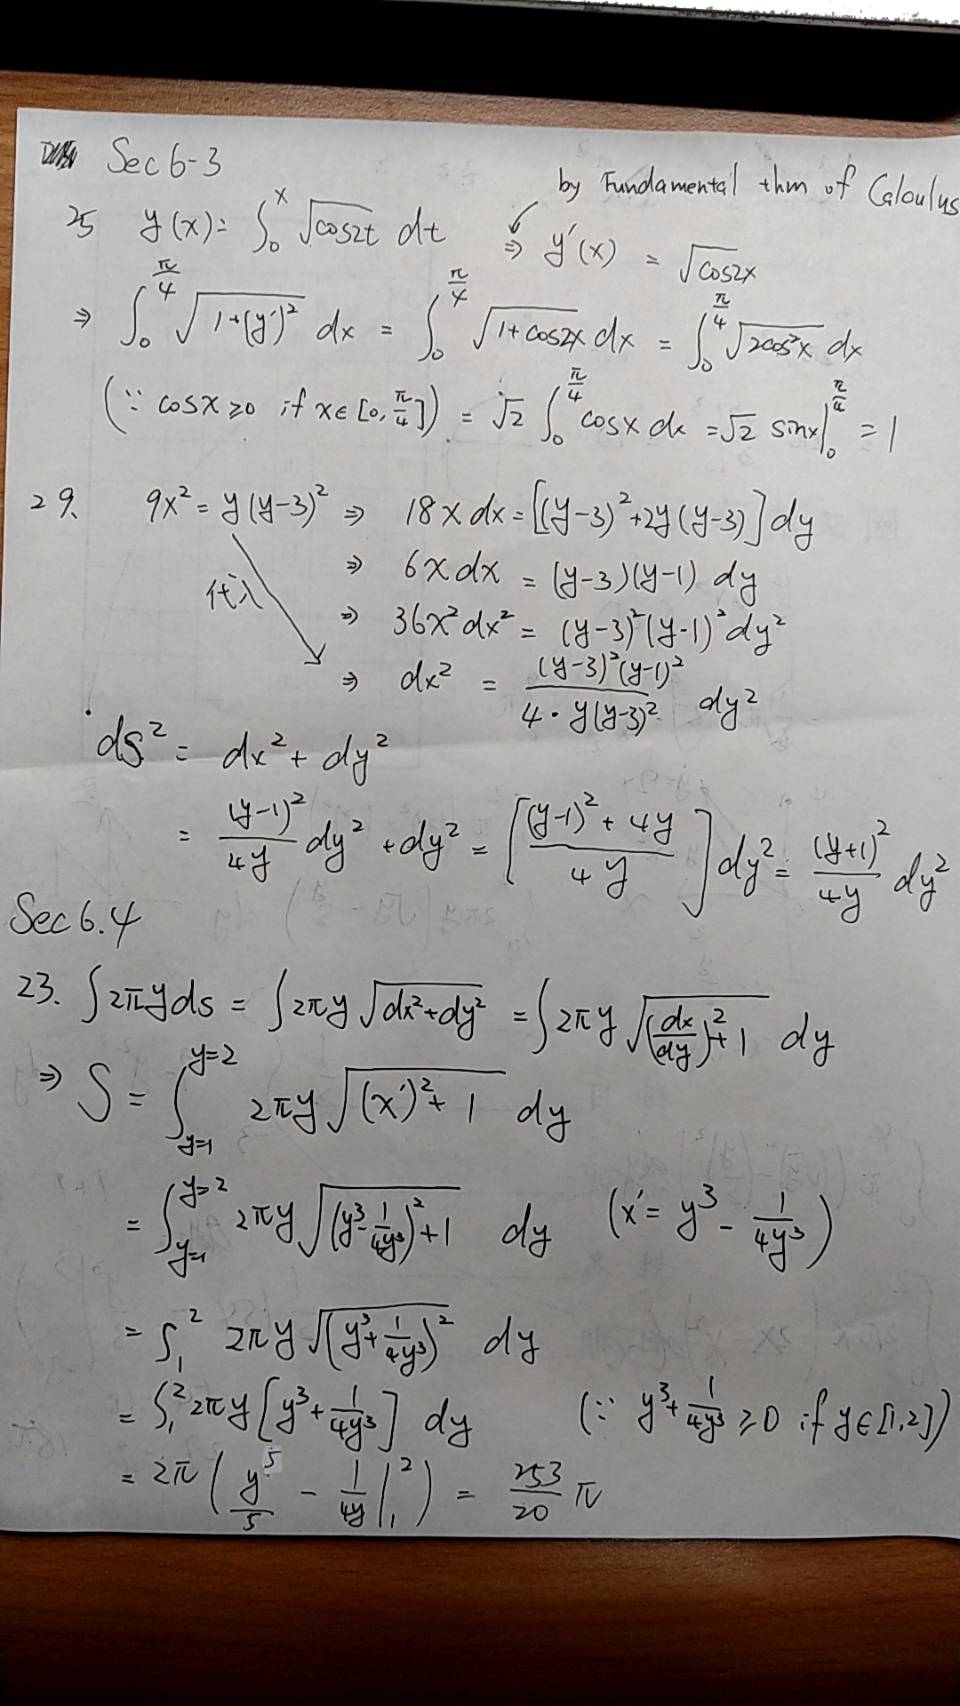 Sec 6-3
by Fundamental thm of Calculus
25 y(x) = ∫₀ˣ √cos2t dt ⇒ y'(x) = √cos2x
⇒ ∫₀^(π/4) √(1+(y')²) dx = ∫₀^(π/4) √(1+cos2x) dx = ∫₀^(π/4) √(2cos²x) dx
(∵ cosx ≥ 0 if x∈[0, π/4]) = √2 ∫₀^(π/4) cosx dx = √2 sinx|₀^(π/4) = 1
29. 9x² = y(y-3)² ⇒ 18x dx = [(y-3)²+2y(y-3)] dy
⇒ 6x dx = (y-3)(y-1) dy
代入 ⇒ 36x²dx² = (y-3)²(y-1)²dy²
⇒ dx² = (y-3)²(y-1)² / 4·y(y-3)² dy²
ds² = dx² + dy²
= (y-1)²/4y dy² + dy² = [(y-1)²+4y / 4y] dy² = (y+1)²/4y dy²
Sec 6.4
23. ∫2πyds = ∫2πy √(dx²+dy²) = ∫2πy √((dx/dy)²+1) dy
⇒ S = ∫_(y=1)^(y=2) 2πy √((x')²+1) dy
= ∫_(y=1)^(y=2) 2πy √((y³-1/4y³)²+1) dy (x' = y³ - 1/4y³)
= ∫₁² 2πy √((y³+1/4y³)²) dy
= ∫₁² 2πy [y³+1/4y³] dy (∵ y³+1/4y³ ≥ 0 if y∈[1,2])
= 2π (y⁵/5 - 1/4y |₁²) = 253/20 π